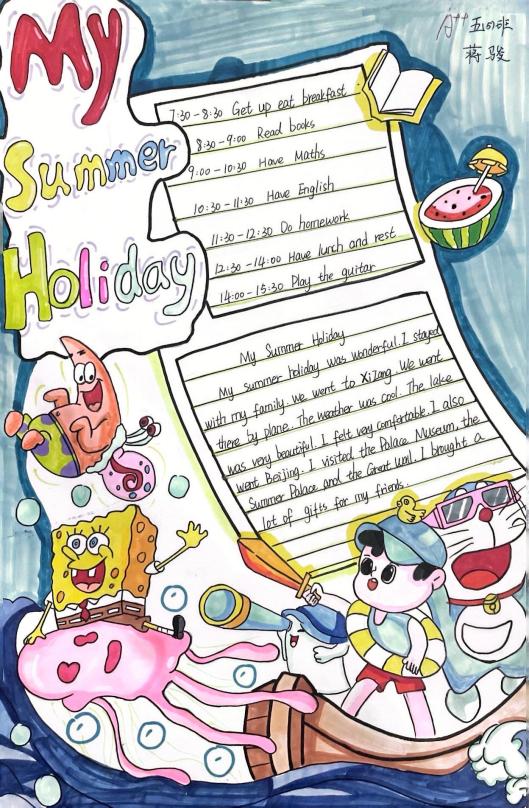 My
Summer
Holiday
A++
五(四)班
蒋骏
7:30-8:30 Get up eat breakfast.
8:30-9:00 Read books
9:00-10:30 Have Maths
10:30-11:30 Have English
11:30-12:30 Do homework
12:30-14:00 Have lunch and rest
14:00-15:30 Play the guitar
My Summer Holiday
My summer holiday was wonderful. I stayed
with my family. We went to XiZang. We went
there by plane. The weather was cool. The lake
was very beautiful. I felt very comfortable. I also
went Beijing. I visited the Palace Museum, the
Summer Palace and the Great Wall. I brought a
lot of gifts for my friends.